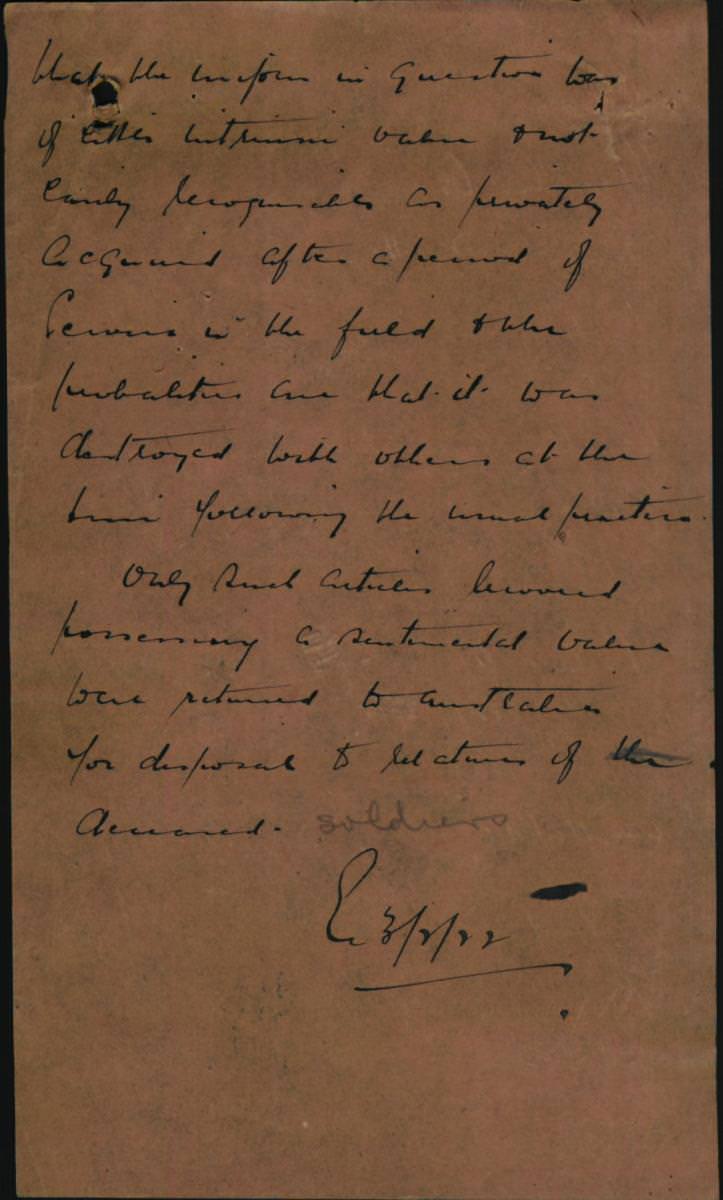 that the uniform in question was
of little intrinsic value & not
easily recognisable as privately
acquired after a period of
service in the field & the
probalities are that it was
destroyed with others at the
time following the usual practice.
Only such articles
possessing a sentimental value
were returned to Australia
for disposal to relatives of the
deceased. soldiers
3/2/22